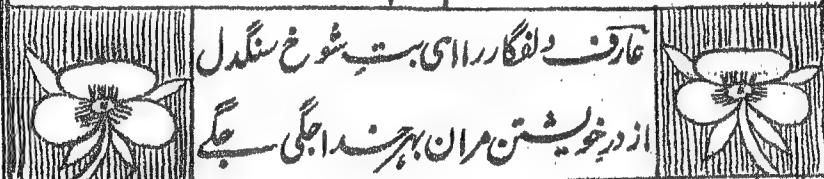 عارف دلفگار را ای بتِ شوخ سنگدل
از درِ خویشتن مران بہر خدا جگی جگے